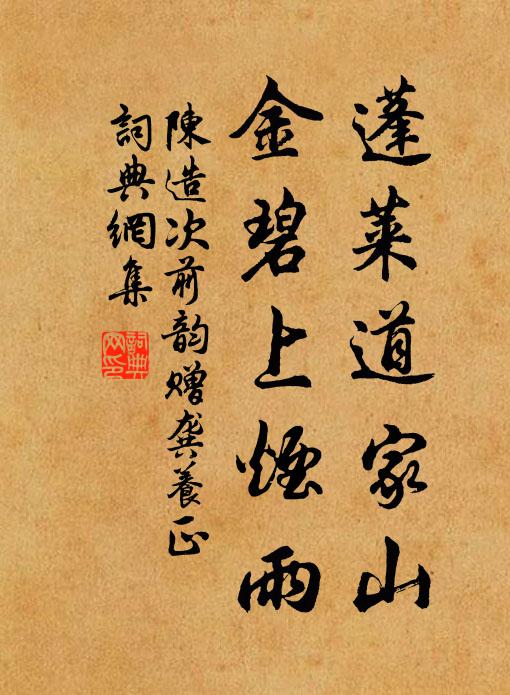 蓬萊道家山
金碧上煙雨
陳造次前韵贈龔養正
詞典網集
詞典網印